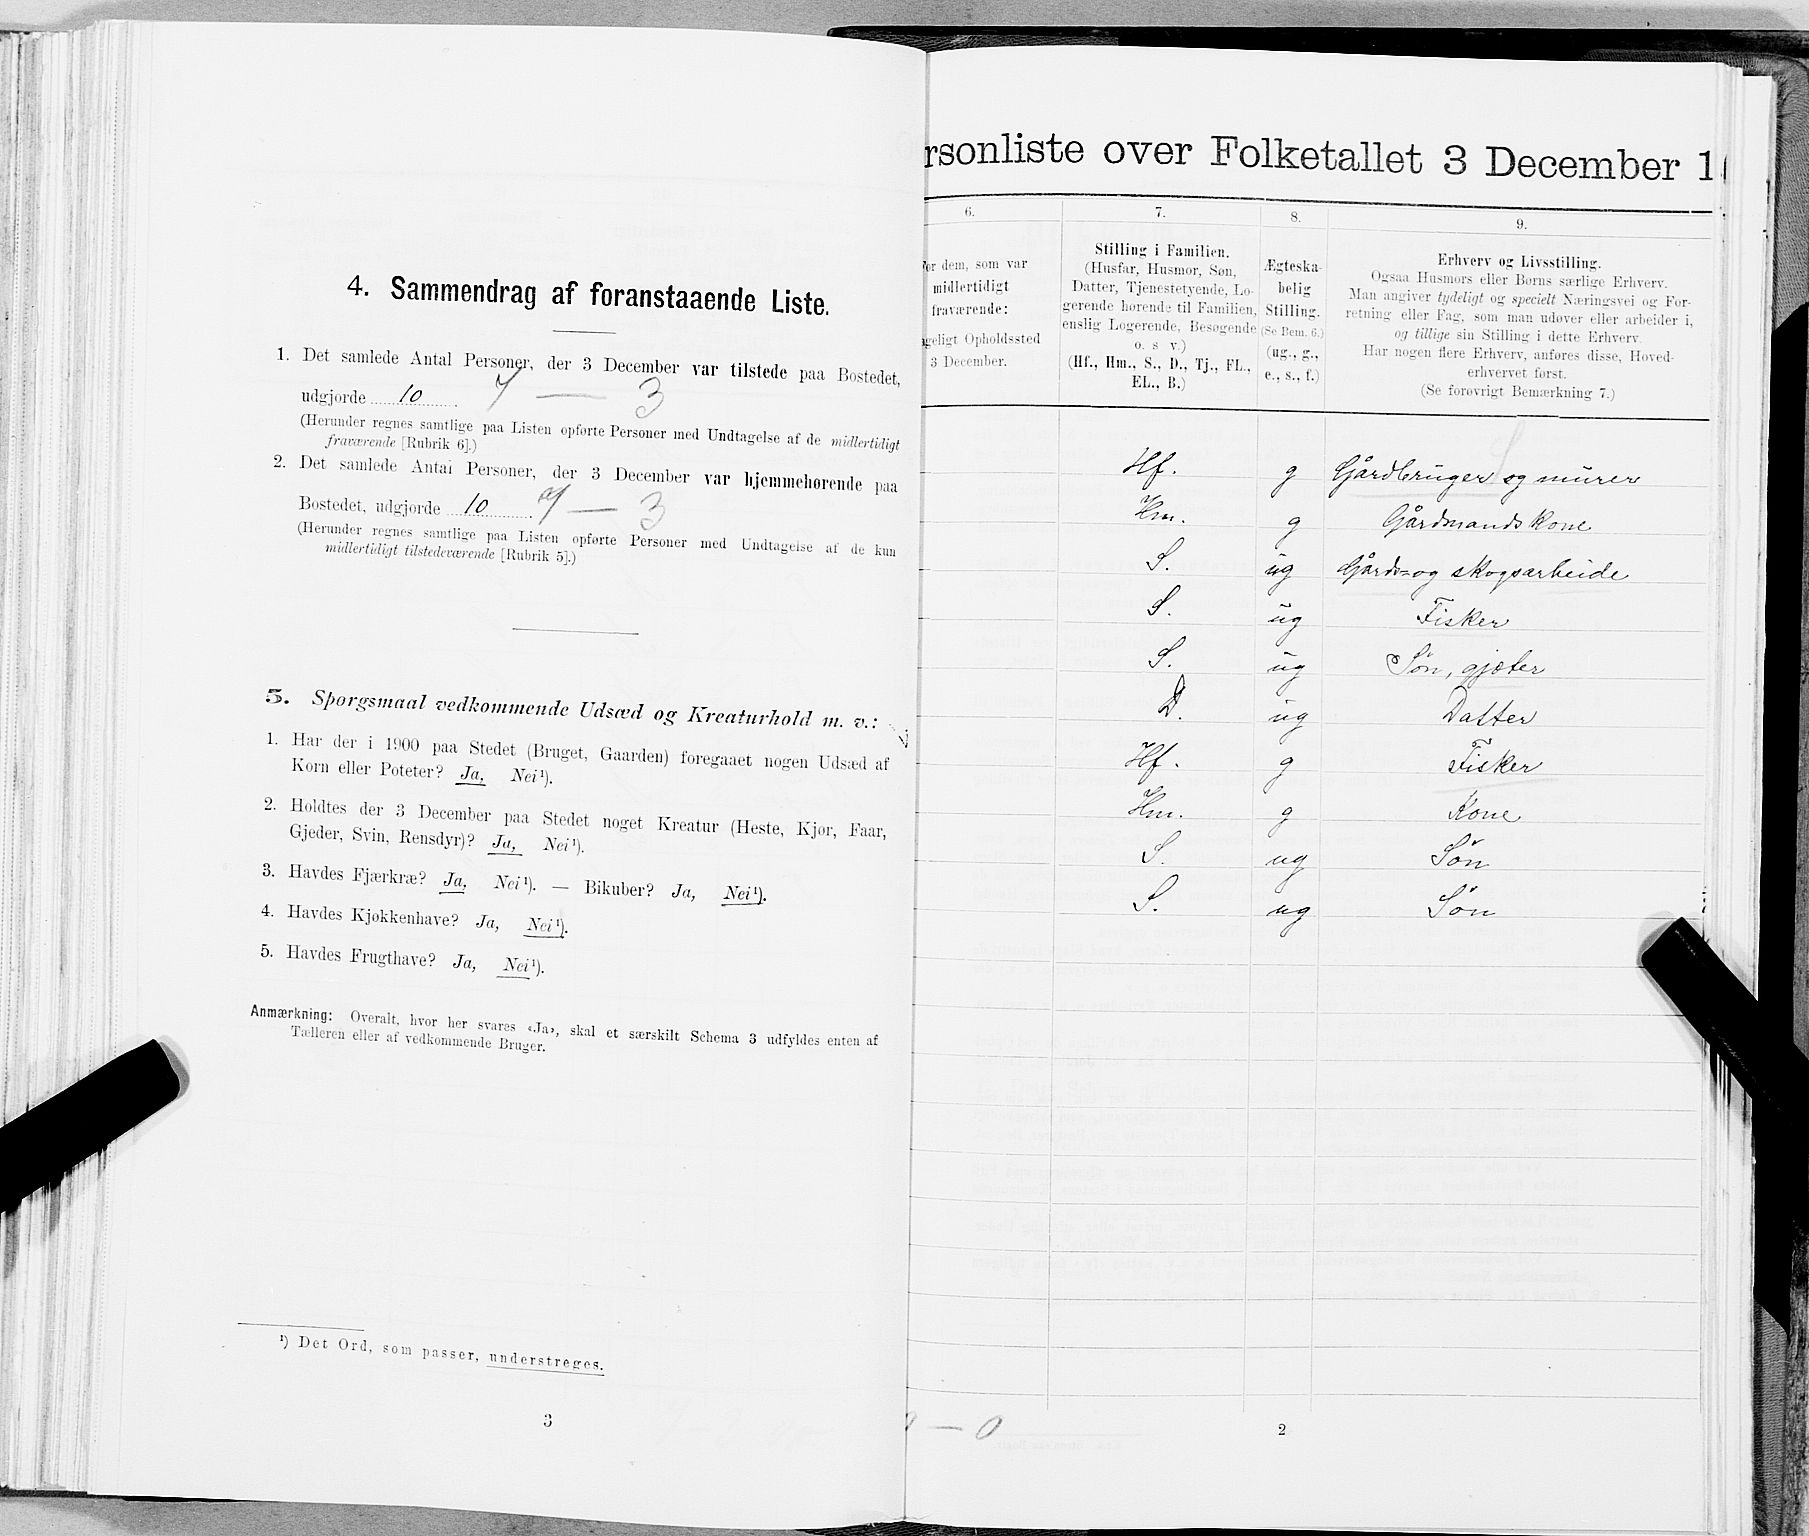 4. Sammendrag af foranstaaende Liste.
1. Det samlede Antal Personer, der 3 December var tilstede paa Bostedet,
udgjorde 10. 7 — 3
(Herunder regnes samtlige paa Listen opførte Personer med Undtagelse af de midlertidigt
fraværende [Rubrik 6].)
2. Det samlede Antal Personer, der 3 December var hjemmehørende paa
Bostedet, udgjorde 10. 7 — 3
(Herunder regnes samtlige paa Listen opførte Personer med Undtagelse af de kun
midlertidigt tilstedeværende [Rubrik 5].)
5. Spørgsmaal vedkommende Udsæd og Kreaturhold m. v.:
1. Har der i 1900 paa Stedet (Bruget, Gaarden) foregaaet nogen Udsæd af
Korn eller Poteter? Ja, Nei¹).
2. Holdtes der 3 December paa Stedet noget Kreatur (Heste, Kjør, Faar,
Gjeder, Svin, Rensdyr)? Ja, Nei¹).
3. Havdes Fjærkræ? Ja, Nei¹). — Bikuber? Ja, Nei¹).
4. Havdes Kjøkkenhave? Ja, Nei¹).
5. Havdes Frugthave? Ja, Nei¹).
Anmærkning: Overalt, hvor her svares «Ja», skal et særskilt Schema 3 udfyldes enten af
Tælleren eller af vedkommende Bruger.
¹) Det Ord, som passer, understreges.
3
rsonliste over Folketallet 3 December 1
6.
or dem, som var
midlertidigt
fraværende:
geligt Opholdssted
3 December.
7.
Stilling i Familien.
(Husfar, Husmor, Søn,
Datter, Tjenestetyende, Lo-
gerende hørende til Familien,
enslig Logerende, Besøgende
o. s. v.)
(Hf., Hm., S., D., Tj., FL.,
EL., B.)
8.
Ægteska-
belig
Stilling.
(Se Bem. 6.)
(ug., g.,
e., s., f.)
9.
Erhverv og Livsstilling.
Ogsaa Husmors eller Børns særlige Erhverv.
Man angiver tydeligt og specielt Næringsvei og For-
retning eller Fag, som man udøver eller arbeider i,
og tillige sin Stilling i dette Erhverv.
Har nogen flere Erhverv, anføres disse, Hoved-
erhvervet først.
(Se forøvrigt Bemærkning 7.)
Hf. g Gårdbruger og murer
Hm. g Gårdmandskone
S. ug Gårds- og skogsarbeide
S. ug Fisker
S. ug Søn, gjæter
D. ug Datter
Hf. g Fisker
Hm. g Kone
S. ug Søn
S. ug Søn
— 0
2